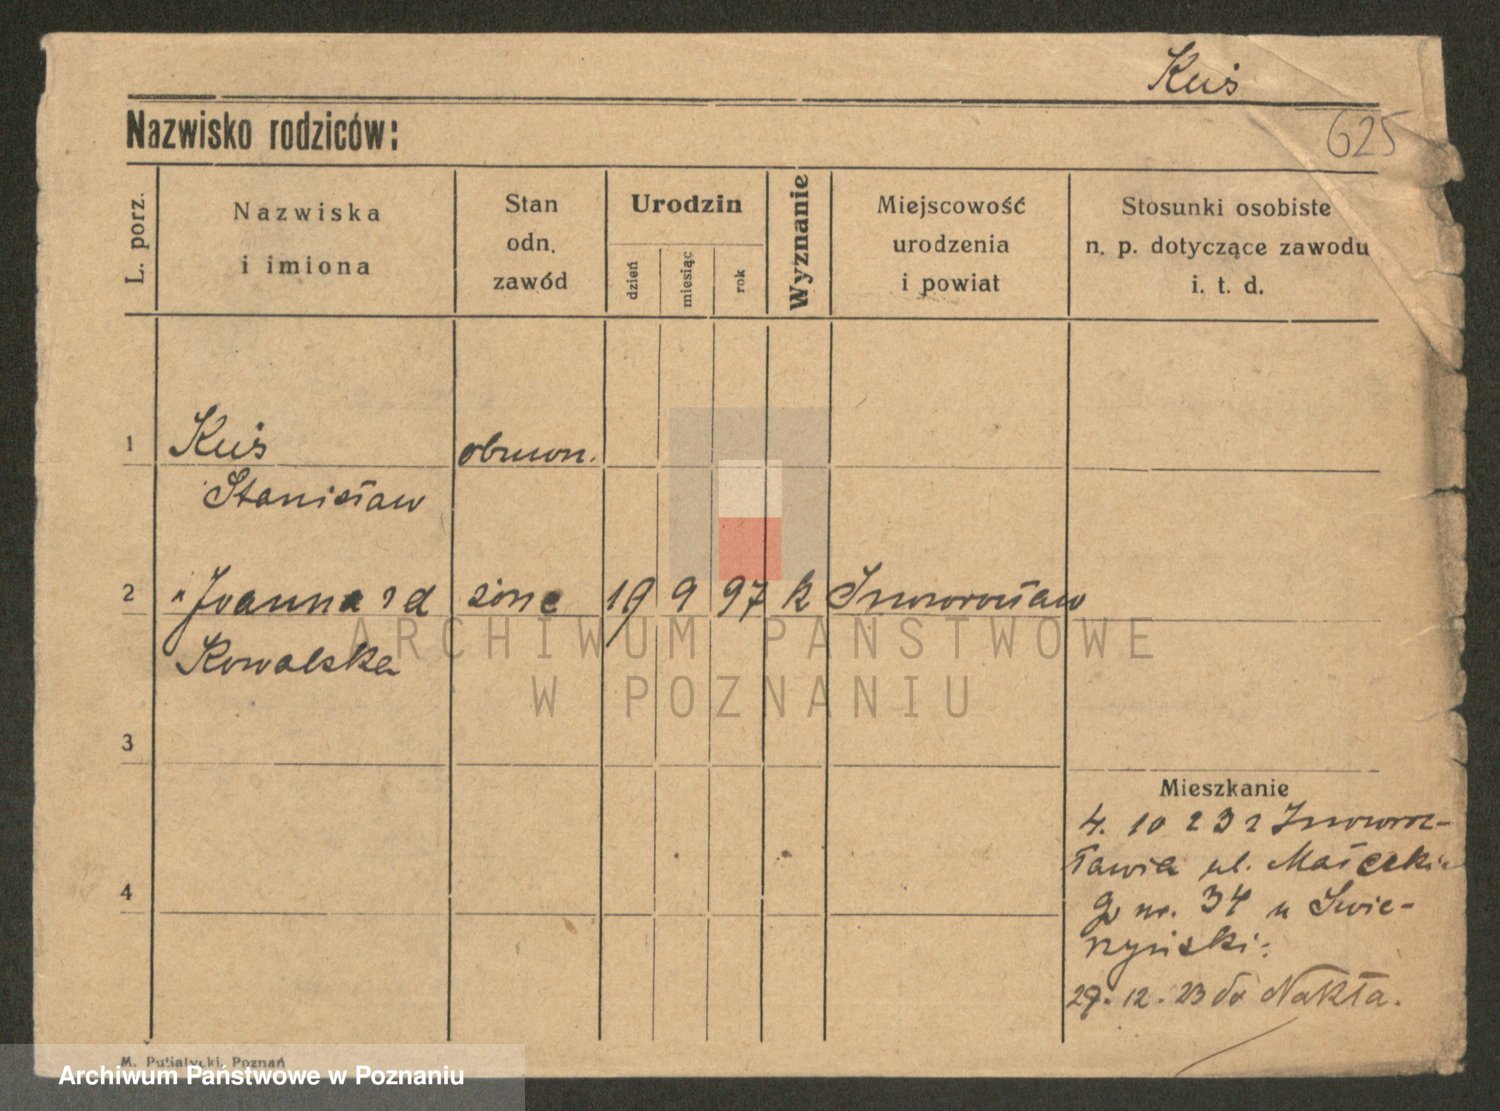 Kuś
Nazwisko rodziców:
625
L. porz.
Nazwiska
i imiona
Stan
odn.
zawód
Urodzin
dzień
miesiąc
rok
Wyznanie
Miejscowość
urodzenia
i powiat
Stosunki osobiste
n. p. dotyczące zawodu
i. t. d.
1 Kuś
Stanisław
2 " Joanna zd żona 19 9 97 k Inowrocław
Kowalska
ARCHIWUM PAŃSTWOWE
W POZNANIU
3
Mieszkanie
4. 10 23 z Inowroc-
ławia ul. Małecki
go nr. 34 u Świe-
rzyński:
4
29. 12. 23 do Nakła.
M. Putiatycki, Poznań
Archiwum Państwowe w Poznaniu